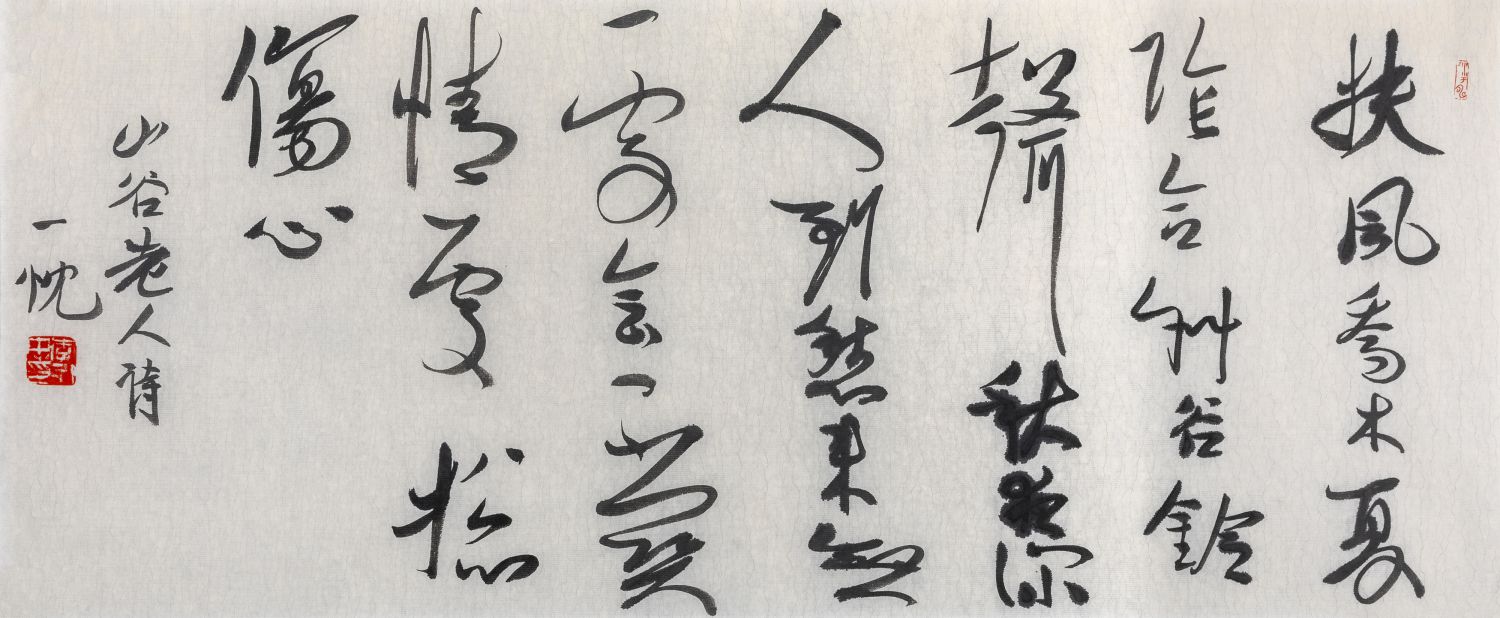 扶風喬木夏
陰合斜谷鈴
聲秋夜深
人到愁來無
處會不關
情處總
傷心
山谷老人詩
一忱